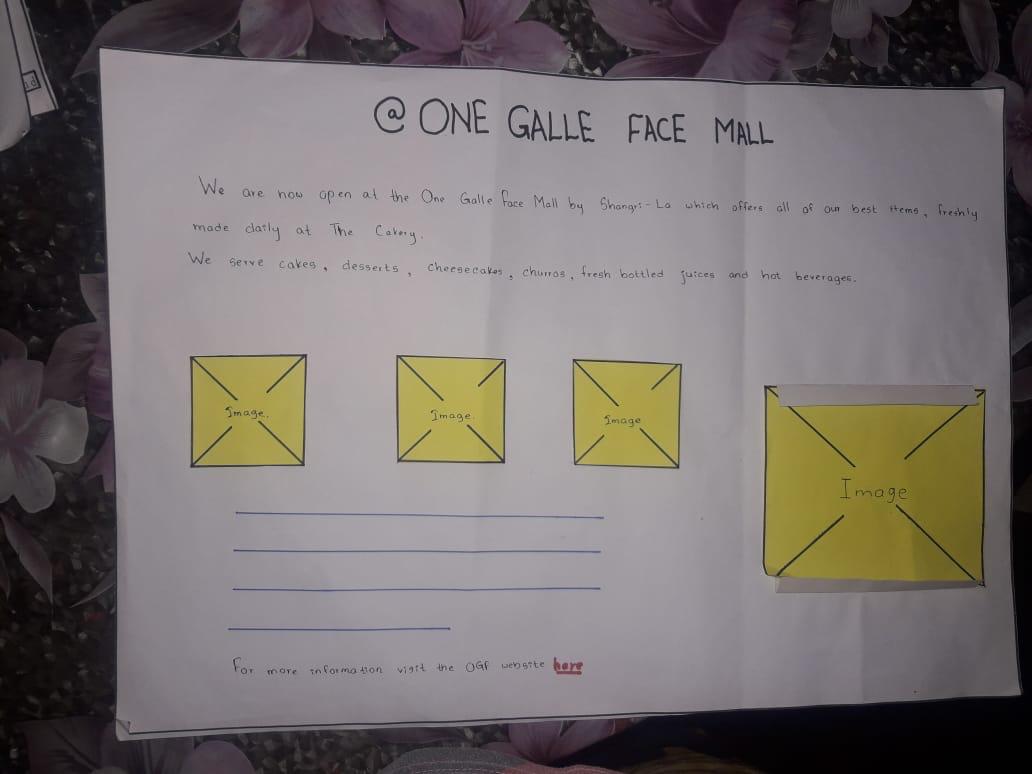 @ ONE GALLE FACE MALL
We are now open at the One Galle Face Mall by Shangri-La which offers all of our best items, freshly
made daily at The Cakery.
We serve cakes, desserts, cheesecakes, churros, fresh bottled juices and hot beverages.
Image.
Image
Image
Image
For more information visit the OGF website here